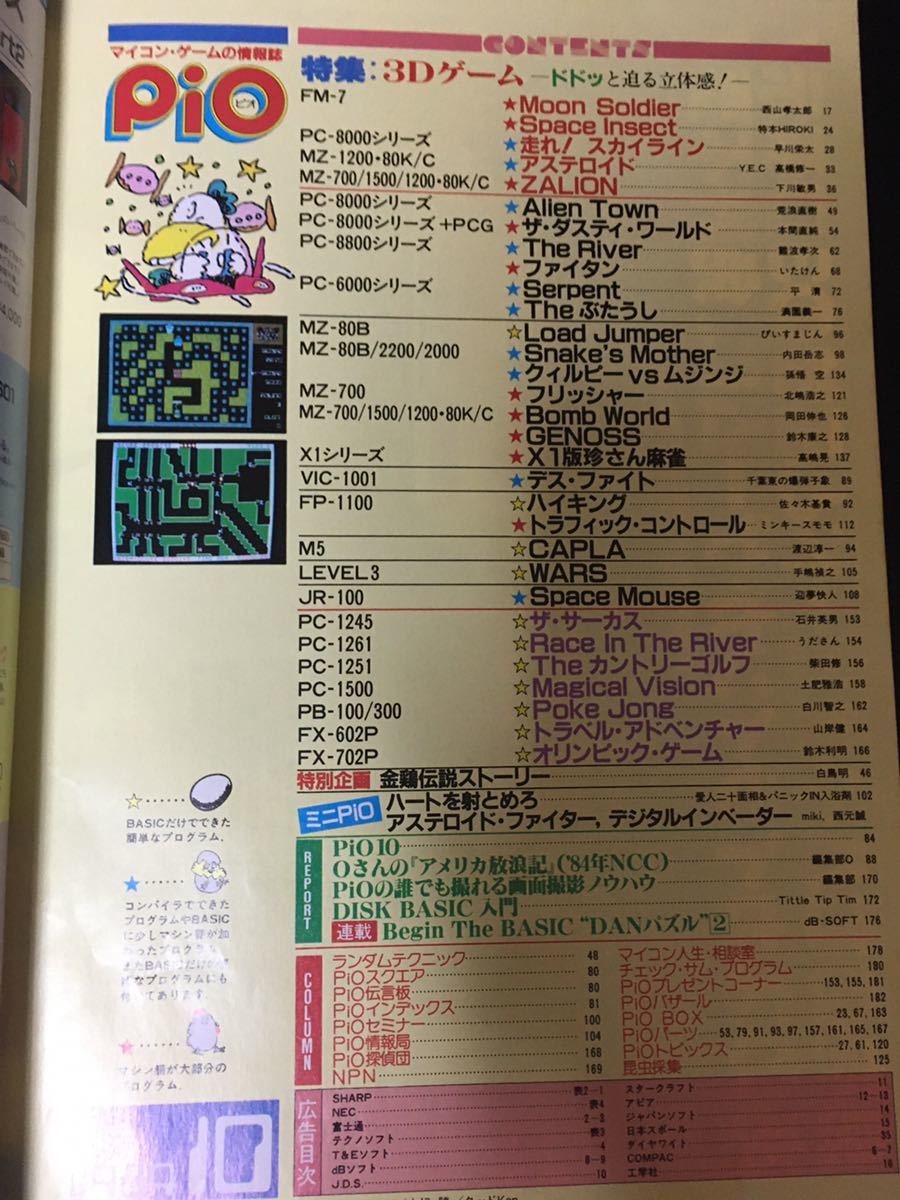 マイコン・ゲームの情報誌
PiO
ピオ
CONTENTS
特集:3Dゲーム ―ドドッと迫る立体感!―
FM-7
★Moon Soldier 西山孝太郎 17
★Space Insect 特本HIROKI 24
PC-8000シリーズ
★走れ! スカイライン 早川栄太 28
MZ-1200・80K/C
★アステロイド Y.E.C 高橋修一 33
MZ-700/1500/1200・80K/C
★ZALION 下川敏男 36
PC-8000シリーズ
★Alien Town 荒浪直樹 49
PC-8000シリーズ+PCG
★ザ・ダスティ・ワールド 本間直純 54
PC-8800シリーズ
★The River 難波孝次 62
★ファイタン いたけん 68
PC-6000シリーズ
★Serpent 平 清 72
★Theぶたうし 義一 76
MZ-80B
☆Load Jumper ぴいすまじん 96
MZ-80B/2200/2000
★Snake's Mother 内田岳志 98
★クィルピーvsムジンジ 孫悟 空 134
MZ-700
★フリッシャー 北嶋浩之 121
MZ-700/1500/1200・80K/C
★Bomb World 岡田伸也 126
★GENOSS 鈴木康之 128
X1シリーズ
★X1版珍さん麻雀 高嶋晃 137
VIC-1001
★デス・ファイト 千葉東の爆弾子象 89
FP-1100
☆ハイキング 佐々木基貴 92
★トラフィック・コントロール ミンキースモモ 112
M5
☆CAPLA 渡辺淳一 94
LEVEL3
☆WARS 手嶋禎之 105
JR-100
★Space Mouse 辺夢快人 108
PC-1245
☆ザ・サーカス 石井英男 153
PC-1261
☆Race In The River うださん 154
PC-1251
☆Theカントリーゴルフ 柴田修 156
PC-1500
☆Magical Vision 土肥雅浩 158
PB-100/300
☆Poke Jong 白川智之 162
FX-602P
☆トラベル・アドベンチャー 山岸健 164
FX-702P
☆オリンピック・ゲーム 鈴木利明 166
特別企画 金鶏伝説ストーリー 白鳥明 46
ミニPiO ハートを射とめろ 愛人二十面相&パニックIN入浴剤 102
アステロイド・ファイター, デジタルインベーダー miki, 西元誠
REPORT
PiO10 84
Oさんの『アメリカ放浪記』('84年NCC) 編集部O 88
PiOの誰でも撮れる画面撮影ノウハウ 編集部 170
DISK BASIC 入門 Tittle Tip Tim 172
連載 Begin The BASIC “DANパズル”2 dB-SOFT 176
COLUMN
ランダムテクニック 48
PiOスクエア 80
PiO伝言板 80
PiOインデックス 81
PiOセミナー 100
PiO情報局 104
PiO探偵団 168
NPN 169
マイコン人生・相談室 178
チェック・サム・プログラム 180
PiOプレゼントコーナー 153, 155, 181
PiOバザール 182
PiO BOX 23, 67, 163
PiOパーツ 53, 79, 91, 93, 97, 157, 161, 165, 167
PiOトピックス 27, 61, 120
昆虫採集 125
広告目次
SHARP 表2-1
NEC 表4
富士通 2-3
テクノソフト 表3
T&Eソフト 4
dBソフト 8-9
J.D.S. 10
スタークラフト 11
アピア 12-13
ジャパンソフト 14
日本スポール 15
ダイヤワイト 35
COMPAC 6-7
工学社 16
☆
BASICだけでできた
簡単なプログラム。
★
コンパイラでできた
プログラムやBASIC
に少しマシン語が加
わったプログラム。
またBASICだけの
なプログラムにも
ってあります。
★
マシン語が大部分の
プログラム。
10